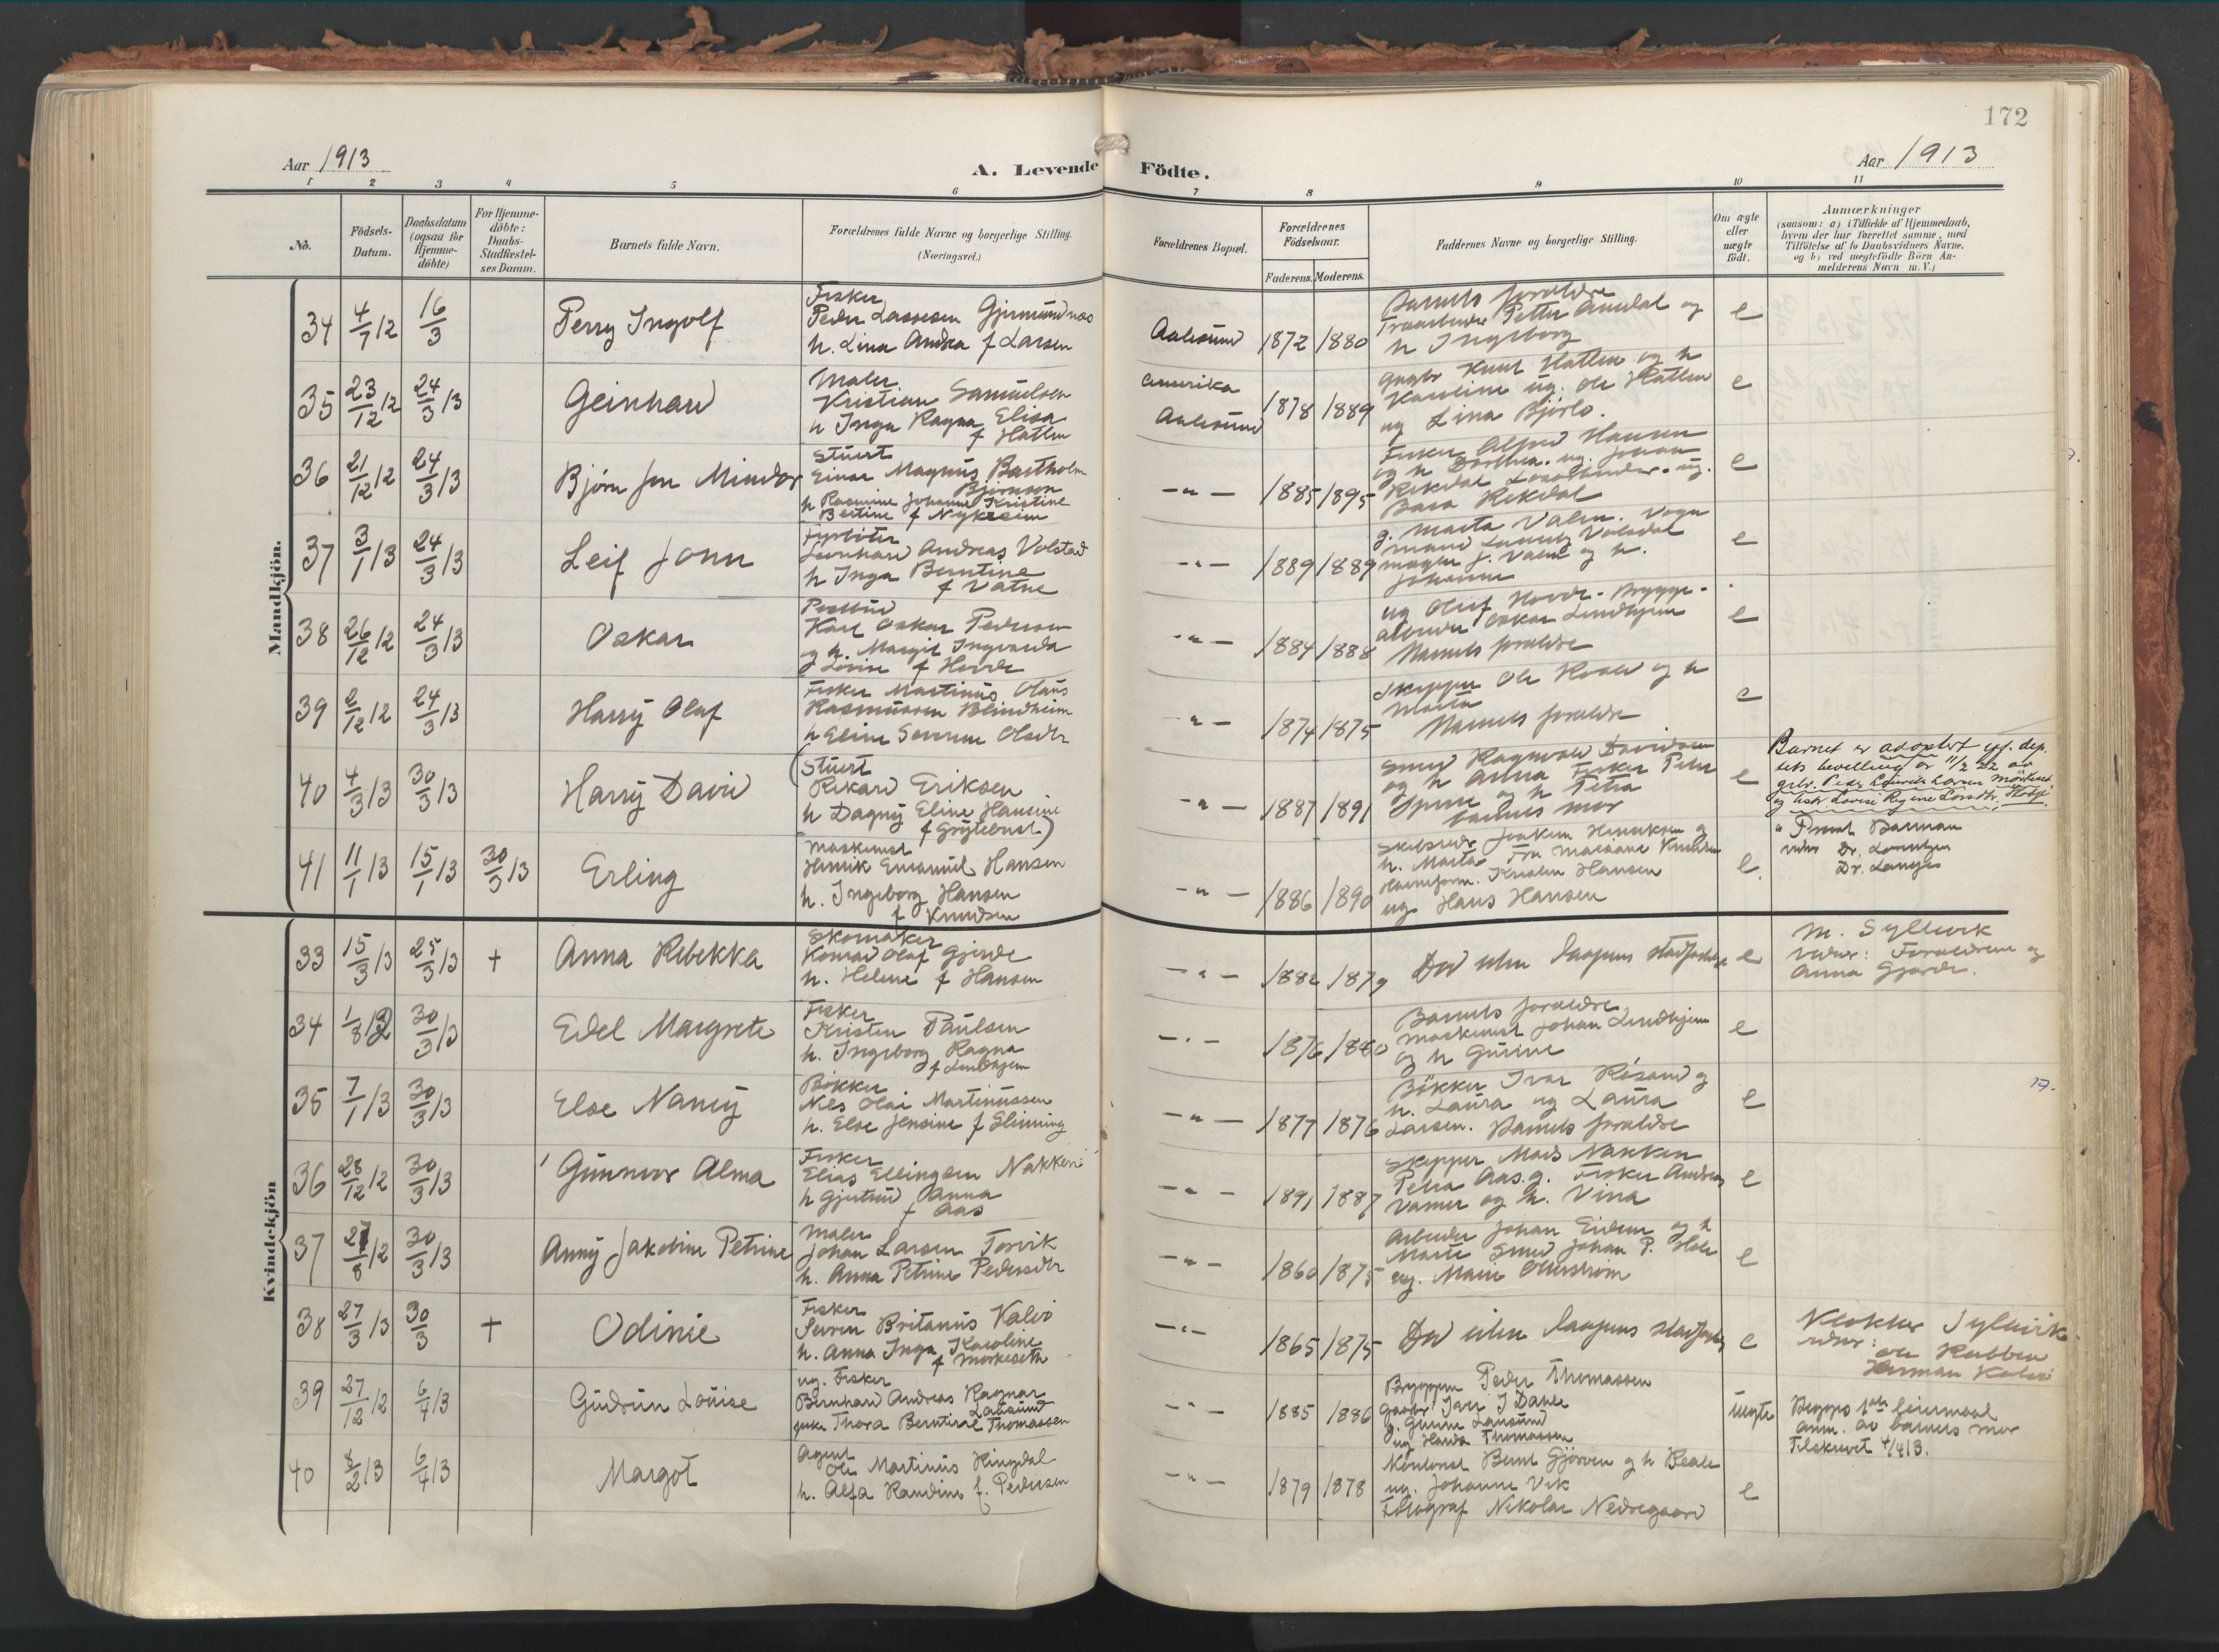 172
Aar 1913
A. Levende Födte.
Aar 1913
1 2 3 4 5 6 7 8 9 10 11
No.
Födsels-Datum.
Daabsdatum (ogsaa for Hjemmedöbte)
For Hjemmedöbte: Daabs-Stadfæstelses Datum.
Barnets fulde Navn.
Forældrenes fulde Navne og borgerlige Stilling. (Næringsvei.)
Forældrenes Bopæl.
Forældrenes Födselsaar.
Faderens. Moderens.
Faddernes Navne og borgerlige Stilling.
Om ægte eller uægte födt.
Anmærkninger
(saasom: a) i Tilfælde af Hjemmedaab,
hvem der har forrettet samme, med
Tilföielse af to Daabsvidners Navne,
og b) ved uægtefödte Börn Anmelderens Navn m. V.)
Mandkjön.
34 4/7 12 16/3 Perry Ingolf
Fisker
Peder Lassesen Gjermundnes
h. Lina Andrea f Larsen
Aalesund 1872 1880
Barnets forældre
Petter Amdal og
h Ingeborg
e
35 23/12 12 24/3 13 Geinhard
Maler
Kristian Samuelsen
h Inga Ragna Elisa
f Hatlen
Amerika
Aalesund 1878 1889
Gaabr Knut Hatlen og h
Karoline ug. Ole Hatlen
ug Lina Bjørlo.
e
36 21/12 12 24/3 13 Bjørn Jon Mindor
Stuert
Einar Magnus Bartholm
Bjørnson
h Rasmine Johanne Kristine
Bertine f Nykreim
-"- 1885 1895
Fisker Alfred Hansen
og h Dorthea. ug. Johan
Rekdal
Rekdal
e
37 3/1 13 24/3 13 Leif John
Fyrbøter
Leonhard Andreas Volstad
h Inga Berntine
f Vatne
-"- 1889 1889
g. Marta Valen. Vogn
mand
Johanne
e
38 26/12 12 24/3 13 Oskar
Postbud
Karl Oskar Pedersen
og h. Margit Ingvarda
Lovise f Hovde
-"- 1884 1888
ug Oluf Hovde. Brygge-
arbeider Oskar Lindhjem
Barnets forældre
e
39 2/12 12 24/3 13 Harry Olaf
Fisker Martinus Olaus
Rasmussen Blindheim
h Eline Severine Olsdtr
-"- 1874 1875
Skipper Ole og h
Marta
Barnets forældre
e
40 4/3 13 30/3 13 Harry David
(Stuert
Rikard Eriksen
h Dagny Eline Hansine
f Grytebust)
-"- 1887 1891
Smed Ragnvald Davidsen
og h Anna Fisker Peter
og h Petra
barnets mor
e
Barnet er adoptert efter dep.
tets bevilling av 11/2 22 av
gbr. Peder Laurits Larsen
og hstr Lovise Regine Larsdtr.
41 11/1 13 15/1 13 30/3 13 Erling
Maskinist
Henrik Emanuel Hansen
h. Ingeborg Hansen
f Knudsen
-"- 1886 1890
Joakim Henriksen g
h. Marta Fru Marianne Knudsen
Kristen Hansen
ug Hans Hansen
e
Prest Barman
vidner Dr. Lorentzen
Dr.
Kvindekjön
33 15/3 13 25/3 13 + Anna Rebekka
Skomaker
Konrad Olaf Gjerde
h. Helene f Hansen
-"- 1882 1879
Død uten daapens stadfæstelse
e
M. Syltevik
vidner: Forældrene og
Anna Gjerde.
34 1/8 12 30/3 13 Edel Margrete
Fisker
Kristen Paulsen
h. Ingeborg Ragna
f Lindhjem
-"- 1876 1880
Barnets forældre
Maskinist Johan Lindhjem
og h Gurine
e
35 7/1 13 30/3 13 Else Nancy
Bøkker
Nils Olai Martinussen
h. Else Jensine f Slinning
-"- 1877 1876
Bökker Ivar Røsand g
h. Laura ug Laura
Larsen. Barnets forældre
e
36 28/12 12 30/3 13 Gunnvor Alma
Fisker
Elias Ellingsen Nakken
h Gjertrud Anna
f Aas
-"- 1891 1887
Skipper Mads Nakken
Petra Aas. g. Fisker Andreas
og h. Vina
e
37 27/8 12 30/3 13 Anny Jakobine Petrine
Maler
Johan Larsen Torvik
h. Anna Petrine Pedersdtr
-"- 1860 1875
Arbeider Johan Eidem og h
Marte Smed Johan P. Hole
ug. Marie
e
38 27/3 13 30/3 + Odinie
Fisker
Søren Britanus Kalvø
h. Anna Inga Karoline
f Morkeseth
-"- 1865 1875
Død uten daapens stadfæstelse
e
Klokker Syltevik
vidner:
Ole Rabben
Herman Kalvø
39 27/12 12 6/4 13 Gudrun Louise
ug. Fisker
Bernhard Andreas Ragnar
Langsund
pike Thora Berntine Thomassen
-"- 1885 1886
Peder Thomassen
Gaabr Iver J Dahle
g. Gurine Langsund
ug Harda Thomassen
uægte
Begges 1ste leiermaal
anm. av barnets mor
Tilskrevet 4/4 13.
40 8/2 13 6/4 13 Margot
Agent
Ole Martinus Ringdal
h. Alfa Randine f. Pedersen
-"- 1879 1878
Kontorist Bernt Gjørven g h Beate
ug. Johanne Vik
Fotograf Nikolai Nedregaard
e